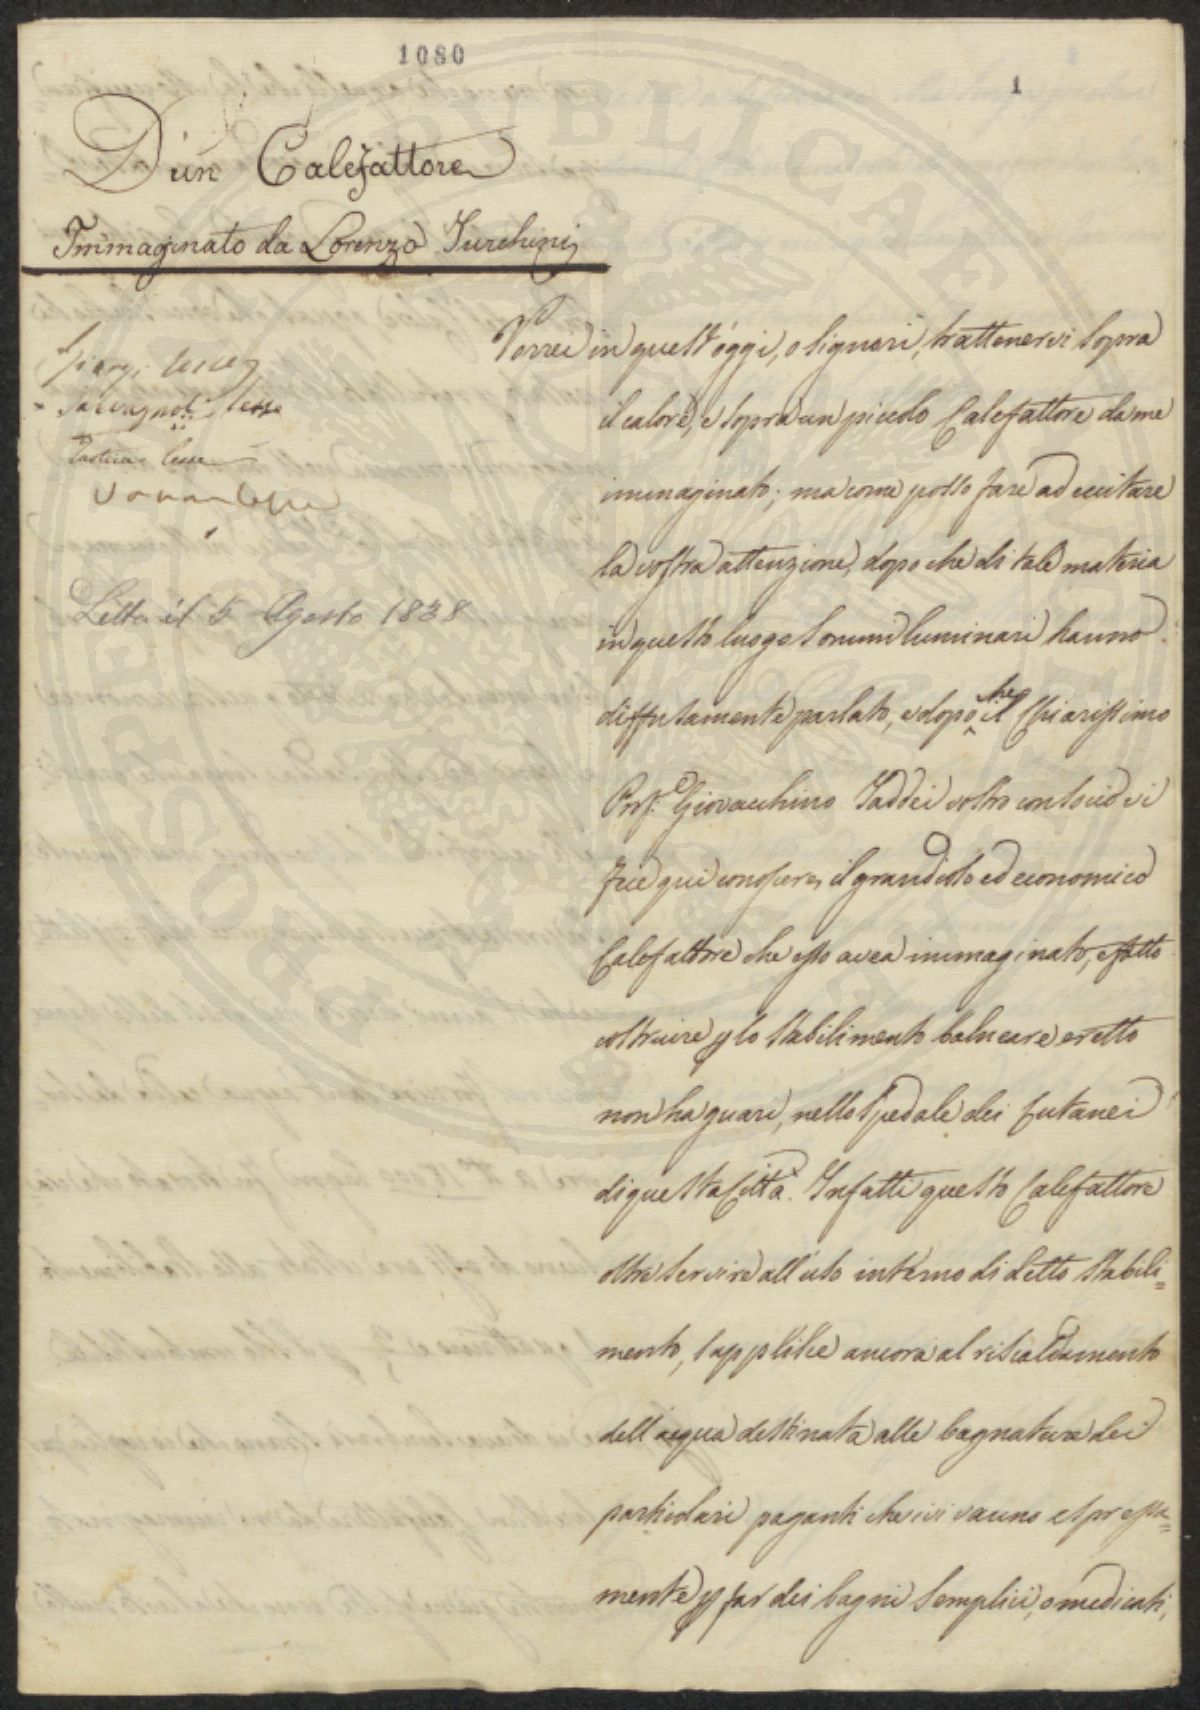 1080
1
D'un Calefattore
Immaginato da Lorenzo Turchini
Vorrei in quest'oggi, o Signori, trattenervi sopra
il calore, e sopra un piccolo Calefattore da me
immaginato; ma come posso fare ad eccitare
la vostra attenzione, dopo che di tale materia
in questo luogo sommi luminari hanno
diffusamente parlato, e dopo che il Chiarissimo
Prof. Giovacchino Taddei vostro consocio vi
fece qui conoscere, il grandioso ed economico
Calefattore che esso avea immaginato, e fatto
costruire p lo stabilimento balneare eretto
non ha guari, nello Spedale dei cutanei
di questa Città. Infatti questo Calefattore
oltre servire all'uso interno di detto Stabili=
mento, supplisce ancora al riscaldamento
dell'acqua destinata alle bagnature dei
particolari paganti che ivi vanno espressa=
mente p far dei bagni semplici, o medicati,
lesse
Salvagnoli lesse
lesse
Letta il 5 Agosto 1838